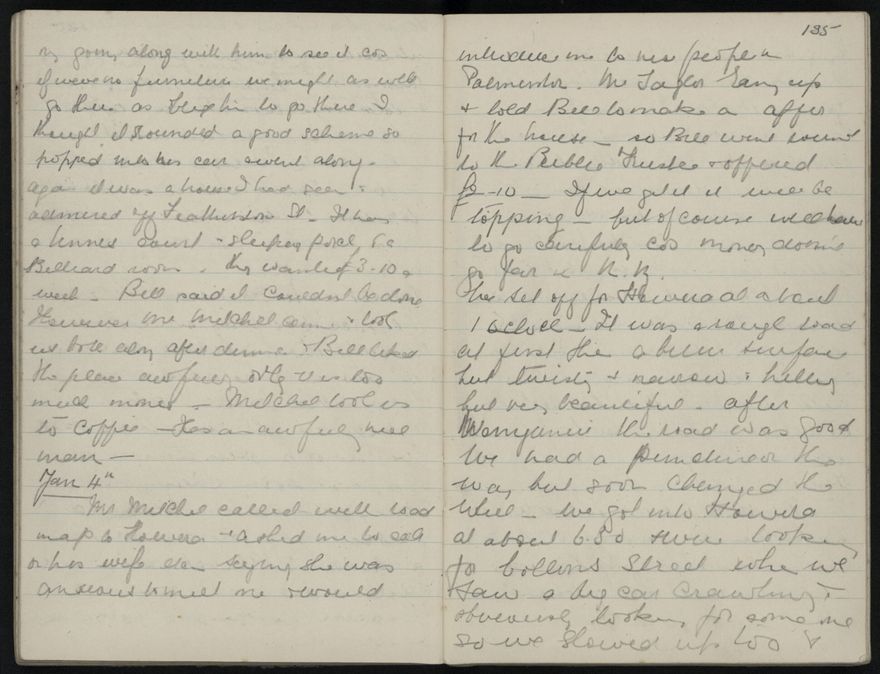 my going along with him to see it cos
if we were no furniture we might as well
go there as to go there I
thought it sounded a good scheme so
popped into his car & went along.
again it was a house I had seen &
admired off Featherston St. It has
a tennis court & sleeping porch &c
Billiard room. They wanted £3-10 a
week. Bill said it couldn't be done
However Mr Mitchel came & took
us both along after dinner & Bill liked
the place awfully only it is too
much money. Mitchel took us
to Coffee. He's an awfully nice
man —
Jan 4th
Mr Mitchel called with road
map to Hawera & asked me to call
on his wife saying she was
anxious to meet me & would
135
introduce me to new people in
Palmerston. Mr Taylor rang up
& told Bill to make a offer
for the house — so Bill went round
to the Public Trustee & offered
£2-10 — If we get it it will be
topping — but of course we'll have
to go carefully cos money doesn't
go far in N.Z.
We set off for Hawera at about
1 o'clock — It was a rough road
at first then a better surface
but twisty & narrow & hilly
but very beautiful. After
Wanganui the road was good
We had a puncture on the
way but soon changed the
wheel — We got into Hawera
at about 6.30 & were looking
for Collins Street when we
saw a big car crawling &
obviously looking for some one
so we slowed up too &